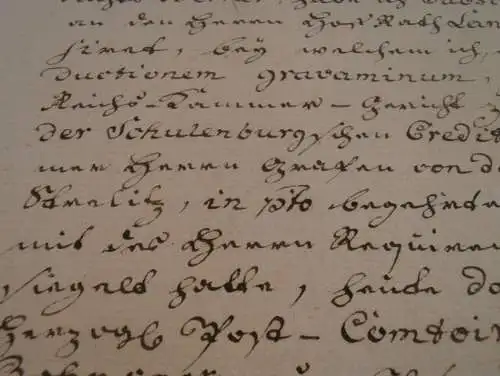 an den Herrn Hoff Rath Lan
siret, bey welchem ich,
ductionem gravaminum,
Reichs-Cammer-Gericht
der Schulenburgschen Credit
mer Herrn Grafen von de
Strelitz, in pto begehrte
mit des Herrn Requiren
siegelt hatte, heute do
Herzogl Post-Comtoir